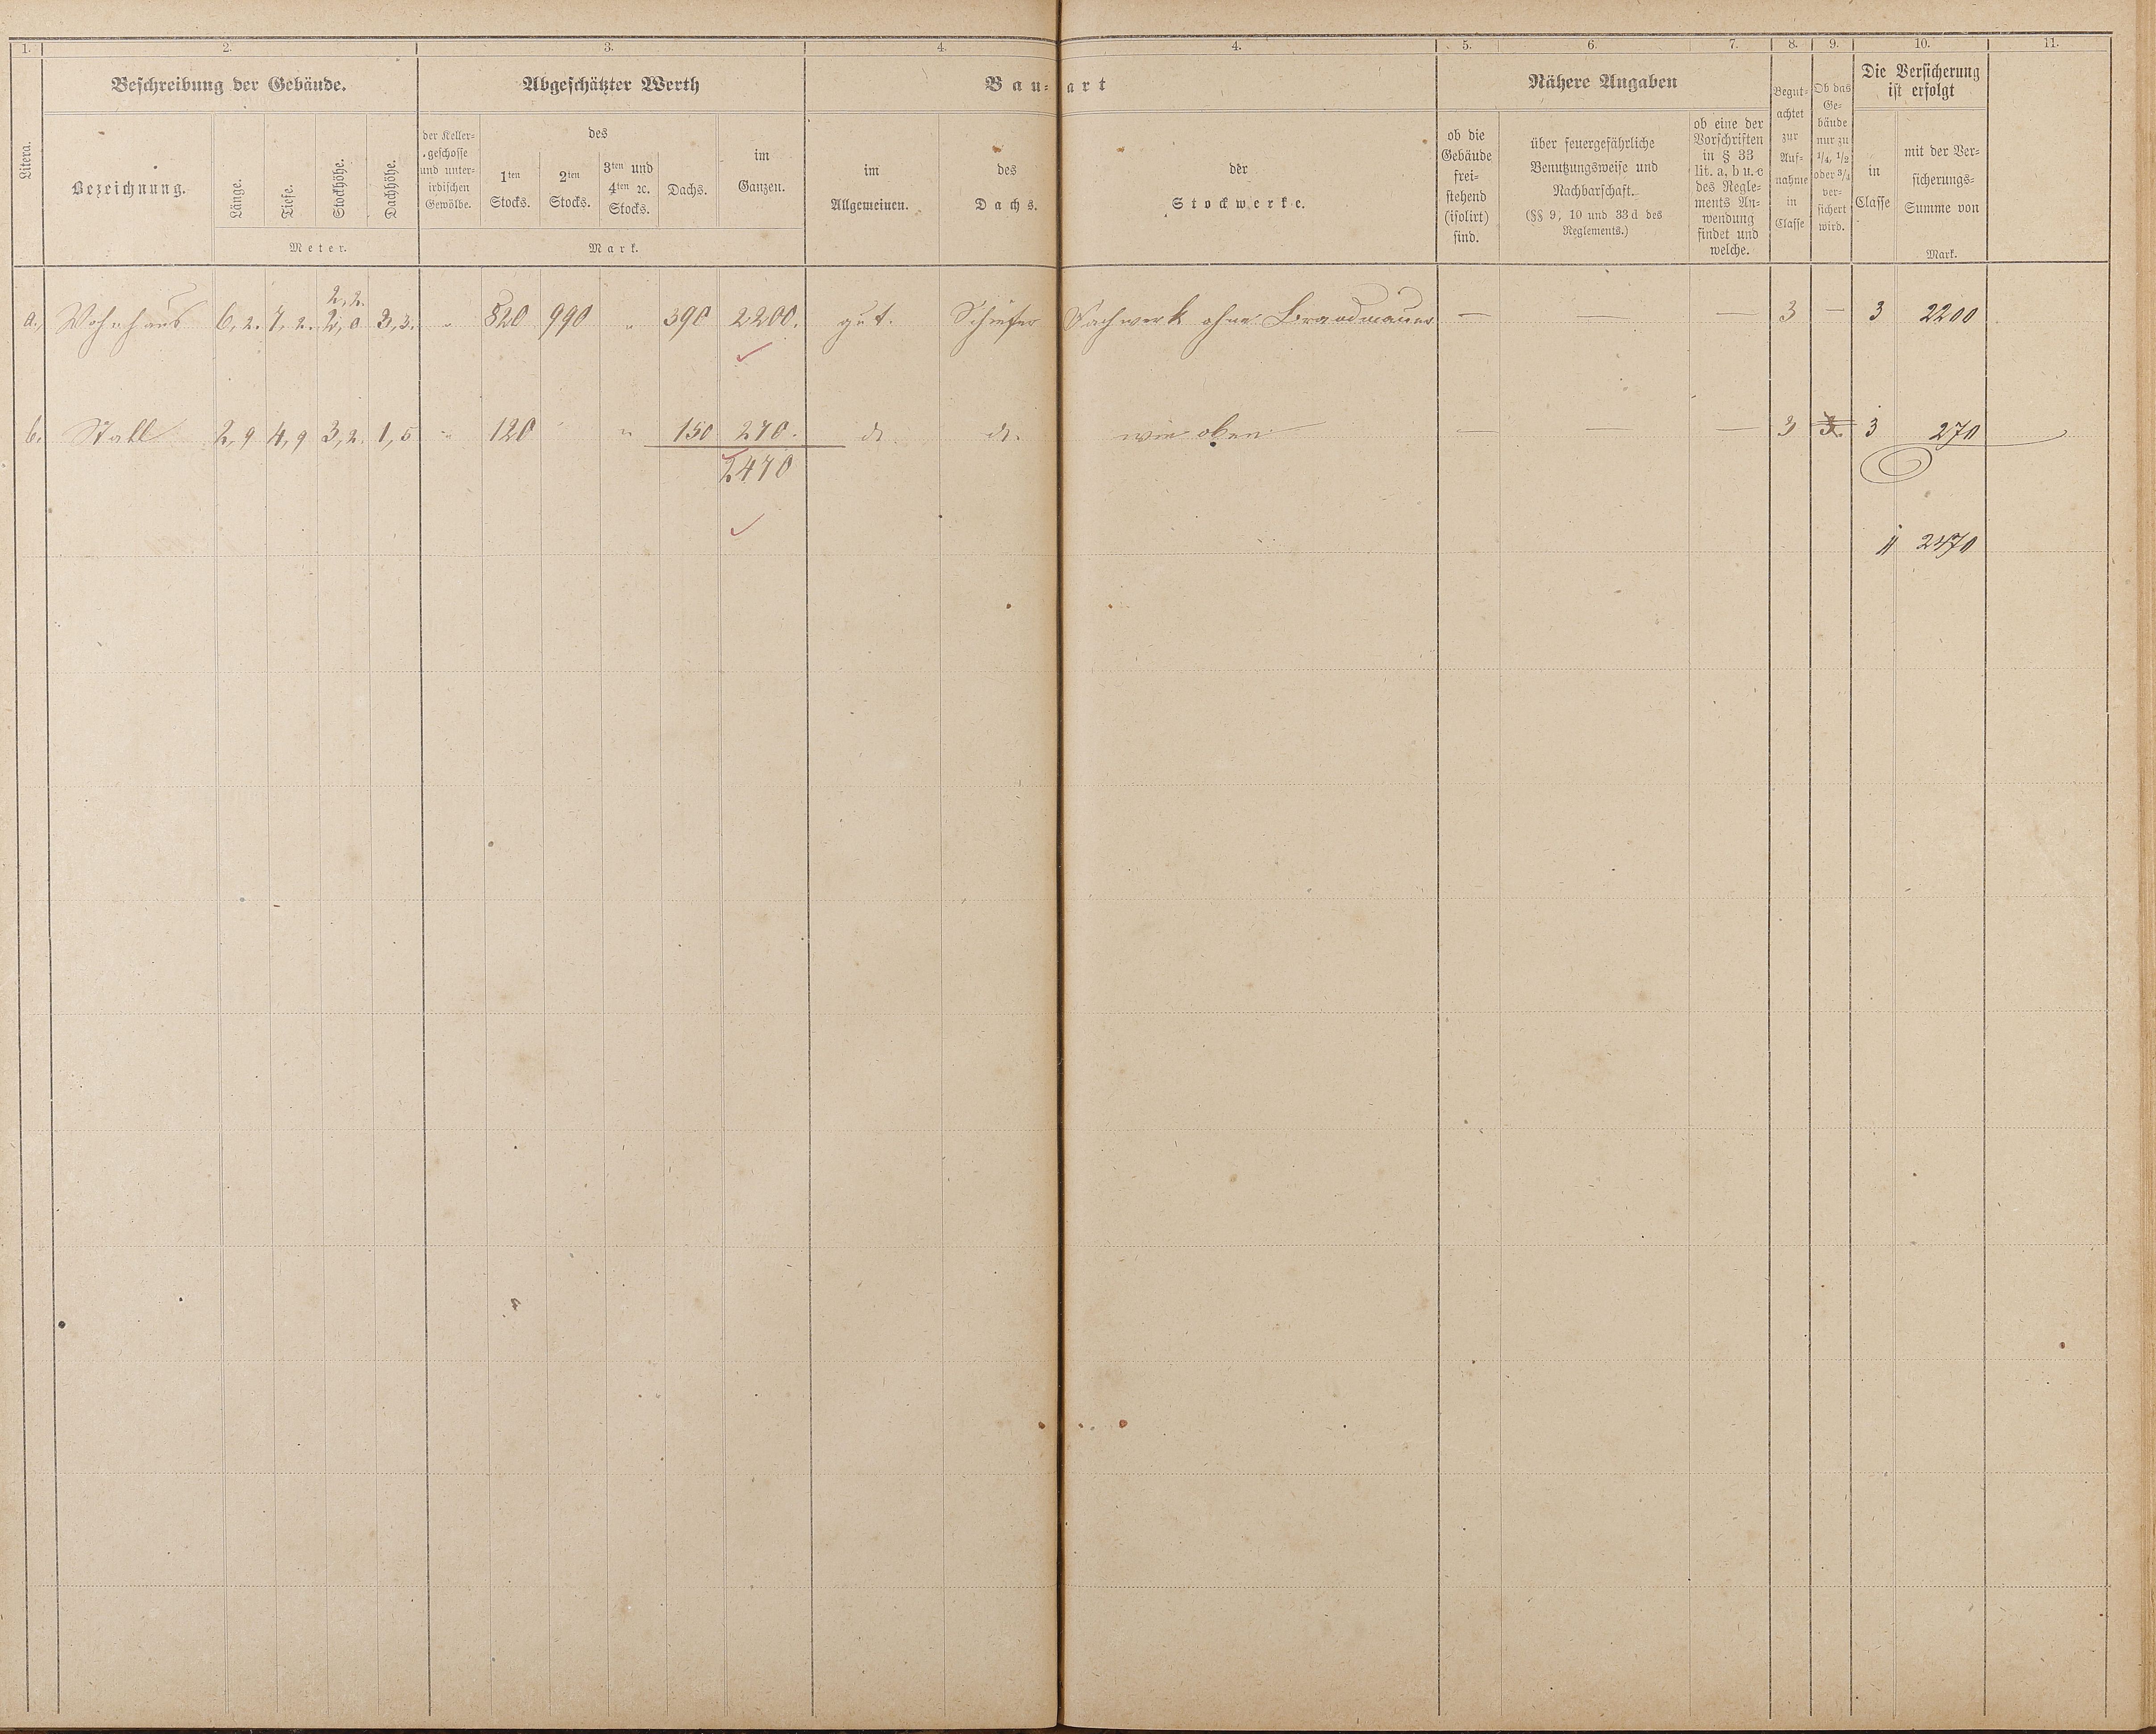 1. 2. 3. 4. 4. 5. 6. 7. 8. 9. 10. 11.
Litera.
Beschreibung der Gebäude.
Bezeichnung.
Länge.
Tiefe.
Stockhöhe.
Dachhöhe.
Meter.
Abgeschätzter Werth
der Keller-
geschosse
und unter-
irdischen
Gewölbe.
des
1ten
Stocks.
2ten
Stocks.
3ten und
4ten 2c.
Stocks.
Dachs.
im
Ganzen.
Mark.
Bau-art
im
Allgemeinen.
des
Dachs.
der
Stockwerke.
Nähere Angaben
ob die
Gebäude
frei-
stehend
(isolirt)
sind.
über feuergefährliche
Benutzungsweise und
Nachbarschaft.
(§§ 9, 10 und 33d des
Reglements.)
ob eine der
Vorschriften
in § 33
lit. a, b u. c
des Regle-
ments An-
wendung
findet und
welche.
Begut-
achtet
zur
Auf-
nahme
in
Classe
Ob das
Ge-
bäude
nur zu
1/4, 1/2
oder 3/4
ver-
sichert
wird.
Die Versicherung
ist erfolgt
in
Classe
mit der Ver-
sicherungs-
Summe von
Mark.
2,2.
a. Wohnhaus 6,2. 7,2. 2,0 3,3. " 820 990 " 390 2200. gut. Schiefer Fachwerk ohne Brandmauer — — — 3 — 3 2200
b. Stall 2,9 4,9 3,2. 1,5 " 120 " 150 270. do. do. wie oben — — — 3 3 270
2470
2470